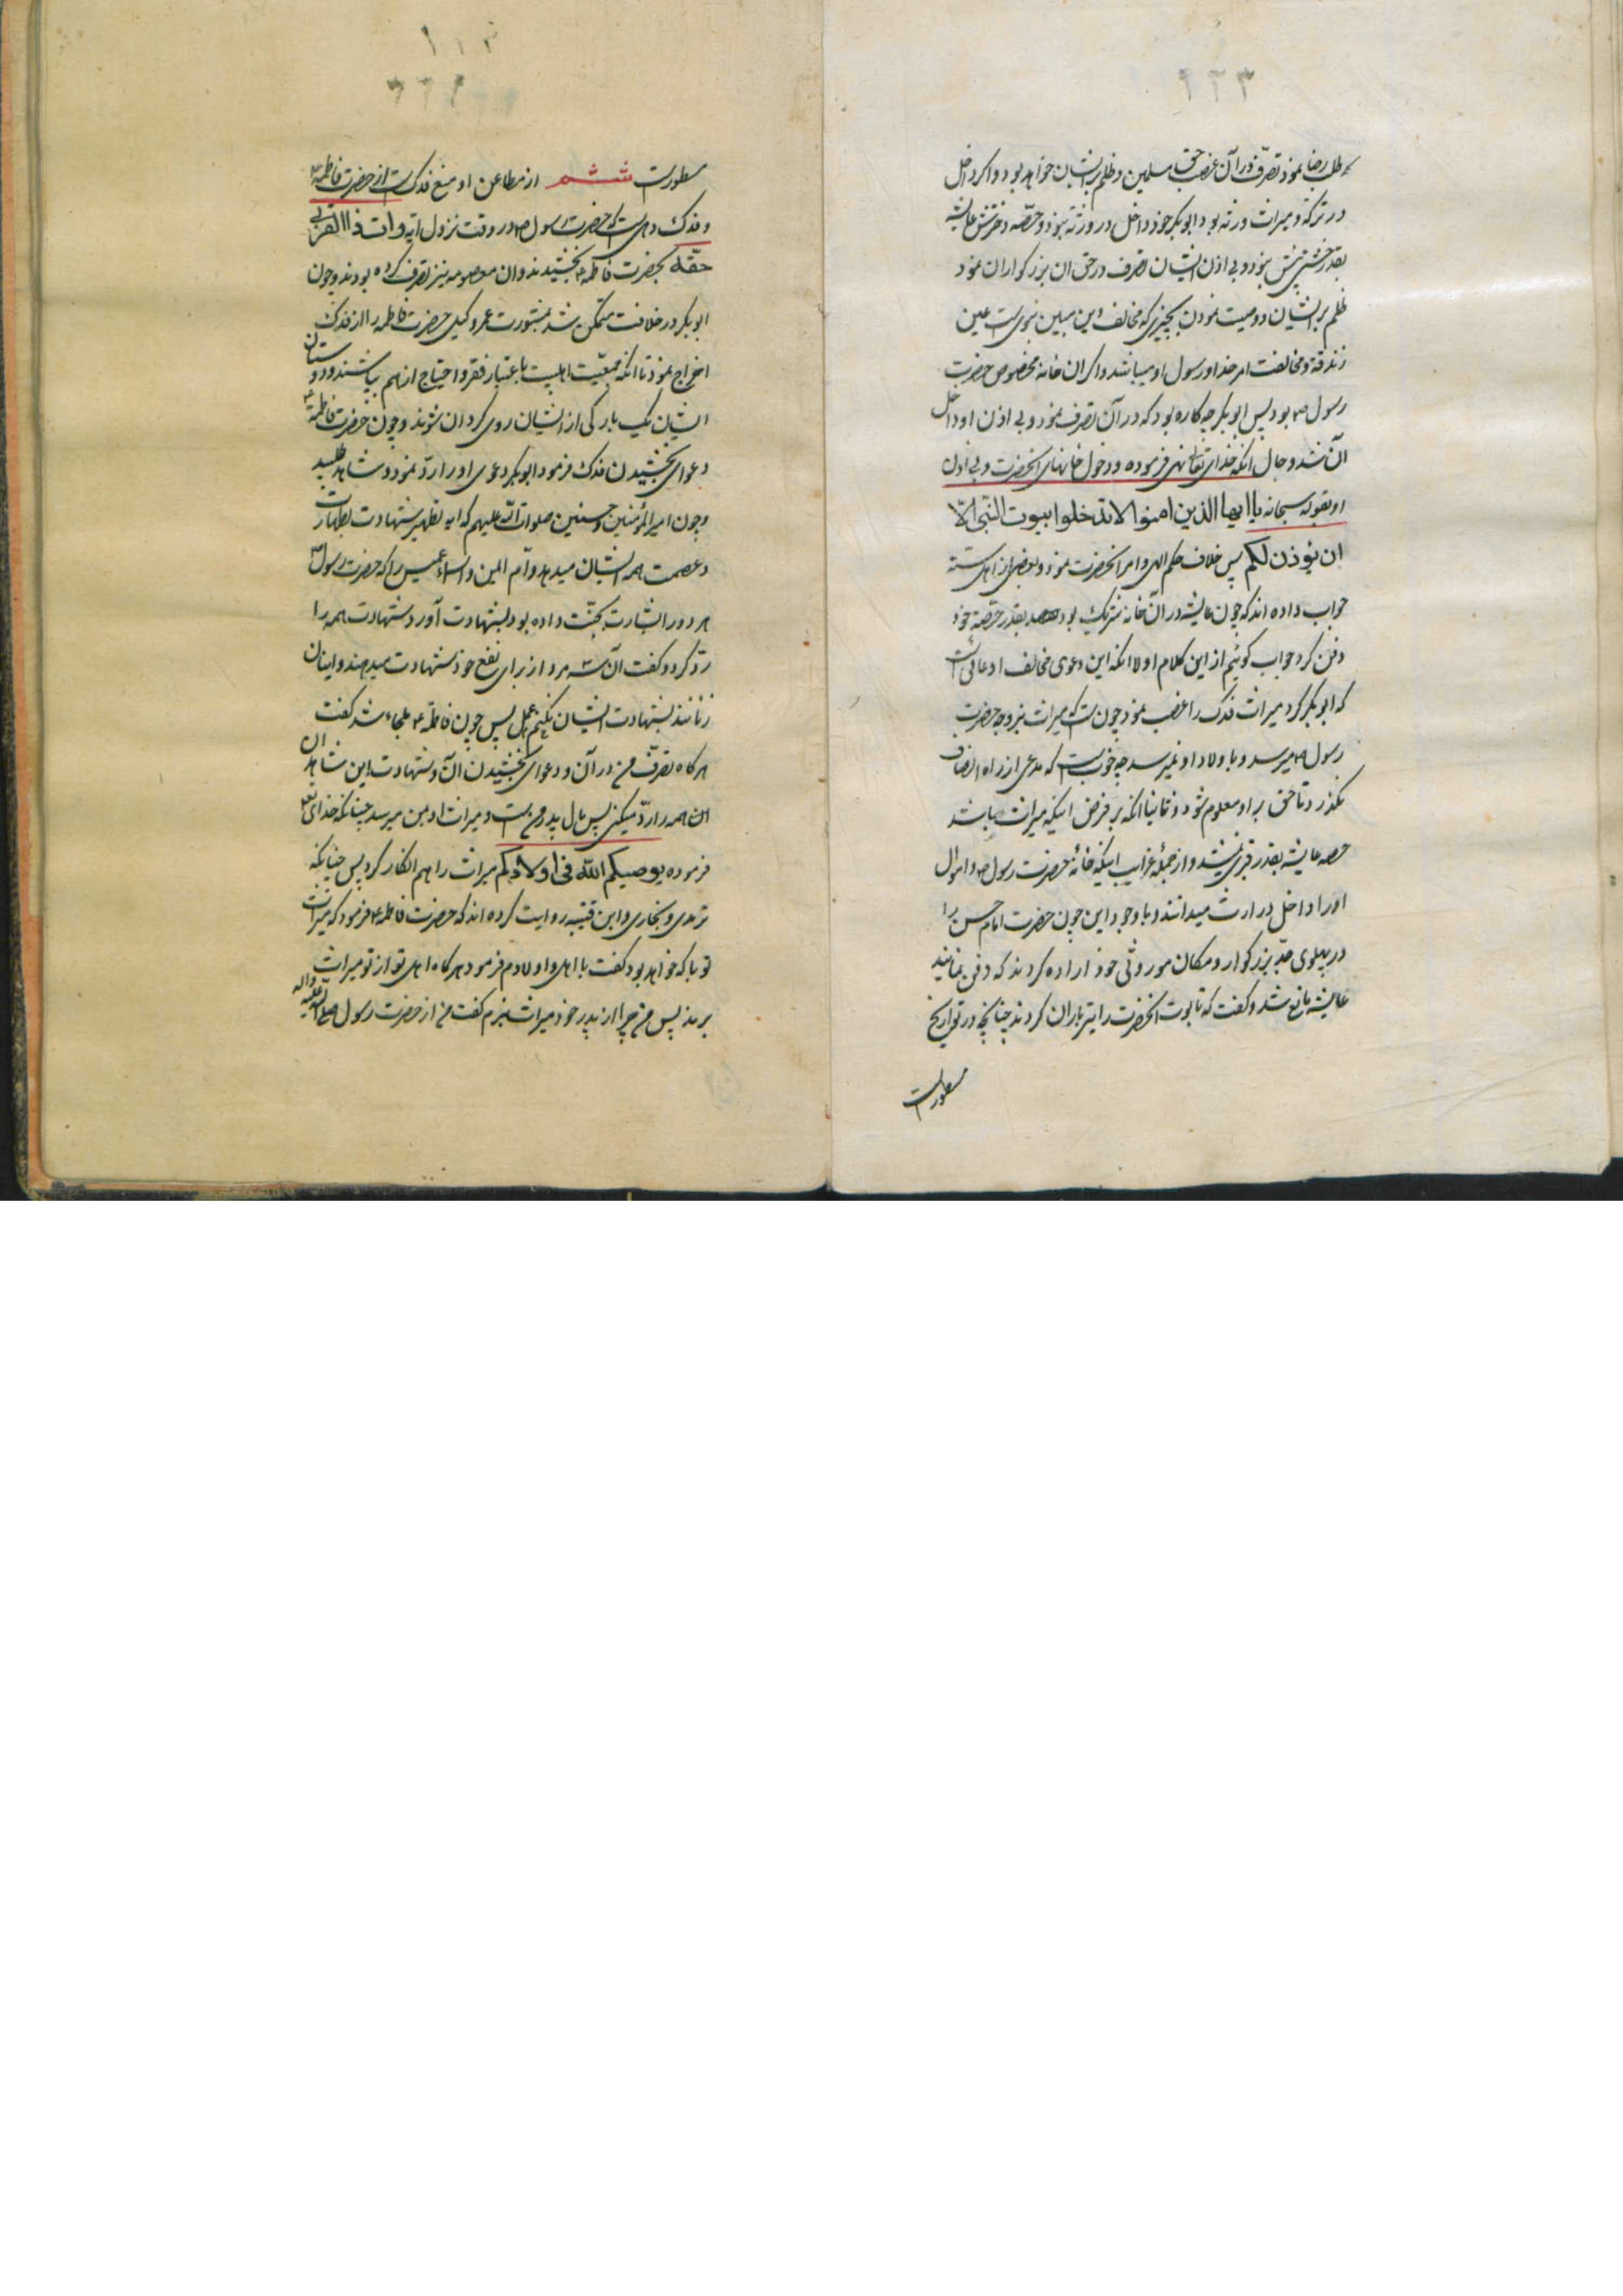 ۲۲۳
طلب رضا نمود تصرف در آن غصب حق مسلمین و ظلم بر ایشان خواهد بود و اکر داخل
در ترکه و میراث ورثه بود ابو بکر خود داخل در ورثه نبود و حصّه دخترش عایشه
بقدر خشتی بیش نبود و بی اذن ایشان تصرف در حق ان بزرکواران نمود
ظلم بر ایشان و وصیت نمودن بچیزی که مخالف دین مبین نبوی است عین
زندقه و مخالفت امر خدا و رسول او میباشد و اکر ان خانه مخصوص حضرت
رسول ص بود پس ابو بکر چه کاره بود که در آن تصرف نمود و بی اذن او داخل
آن شد و حال انکه خدای تعالی نهی فرموده و دخول خانهای انحضرت و بی اذن
او بقوله سبحانه یا ایها الذین امنوا لا تدخلوا بیوت النّبی الّا
ان یؤذن لکم پس خلاف حکم الهی و امر انحضرت نمود و بعضی از اهل سنّة
جواب داده اند که چون عایشه در آن خانه شریک بود بقدر حصّه خود
دفن کرد جواب کوئیم از این کلام اولا انکه این دعوی مخالف ادعائی است
که ابو بکر کرد میراث فدک را غصب نمود چون است که میراث بزوجه حضرت
رسول ص میرسد و باولاد او نمیرسد چه خوب است که مدعی از راه انصاف
نکذرد تا حق بر او معلوم شود و ثانیا انکه بر فرض اینکه میراث باشد
حصه عایشه بقدر قبری نمیشد و از جملهٔ غرایب اینکه خانهٔ حضرت رسول ص و اموال
او را داخل در ارث میدانند و با وجود این چون حضرت امام حسن را
در پهلوی جدّ بزرکوار و مکان موروثی خود اراده کردند که دفن نمایند
عایشه مانع شد و کفت که تابوت انحضرت را تیر باران کردند چنانچه در تواریخ
مسطور است
مسطور است ششم از مطاعن او منع فدک است از حضرت فاطمه ع
و فدک دهی است که حضرت رسول ص در وقت نزول آیه وات ذا القربی
حقّه بحضرت فاطمه ع بخشیدند و ان معصومه نیز تصرف کرده بودند و چون
ابو بکر در خلافت متمکن شد بمشورت عمر وکیل حضرت فاطمه را از فدک
اخراج نمود تا انکه جمعیّت اهلبیت باعتبار فقر و احتیاج از هم بپاشند و دوستان
ایشان یک بارکی از ایشان روی کردان شوند و چون حضرت فاطمه ع
دعوای بخشیدن فدک فرمود ابو بکر دعوی او را ردّ نمود و شاهد طلبید
و چون امیر المؤمنین و حسنین صلوات الله علیهم که ایه تطهیر شهادت بطهارت
و عصمت همه ایشان میدهد و ام ایمن و اسماء عمیس را که حضرت رسول ص
هر دو را بشارت بجنّت داده بود بشهادت آورد شهادت همه را
ردّ کرد و کفت آن سه مرد از برای نفع خود شهادت میدهند و اینان
زنانند بشهادت ایشان نکنیم عمل پس چون فاطمه ع ملجاء شد کفت
هرکاه تصرّف من در آن و دعوای بخشیدن آن و شهادت این شاهدان
این همه را ردّ میکنی پس مال پدر من است و میراث او بمن میرسد چنانکه خدای تعالی
فرموده یوصیکم الله فی اولادکم میراث را هم انکار کرد پس چنانکه
ترمدی و بخاری و ابن قتیبه روایت کرده اند که حضرت فاطمه ع فرمود که میراث
تو با که خواهد بود کفت با اهل و اولادم فرمود هر کاه اهل تو از تو میراث
برند پس من چرا از پدر خود میراث نبرم کفت من از حضرت رسول صلی الله علیه واله